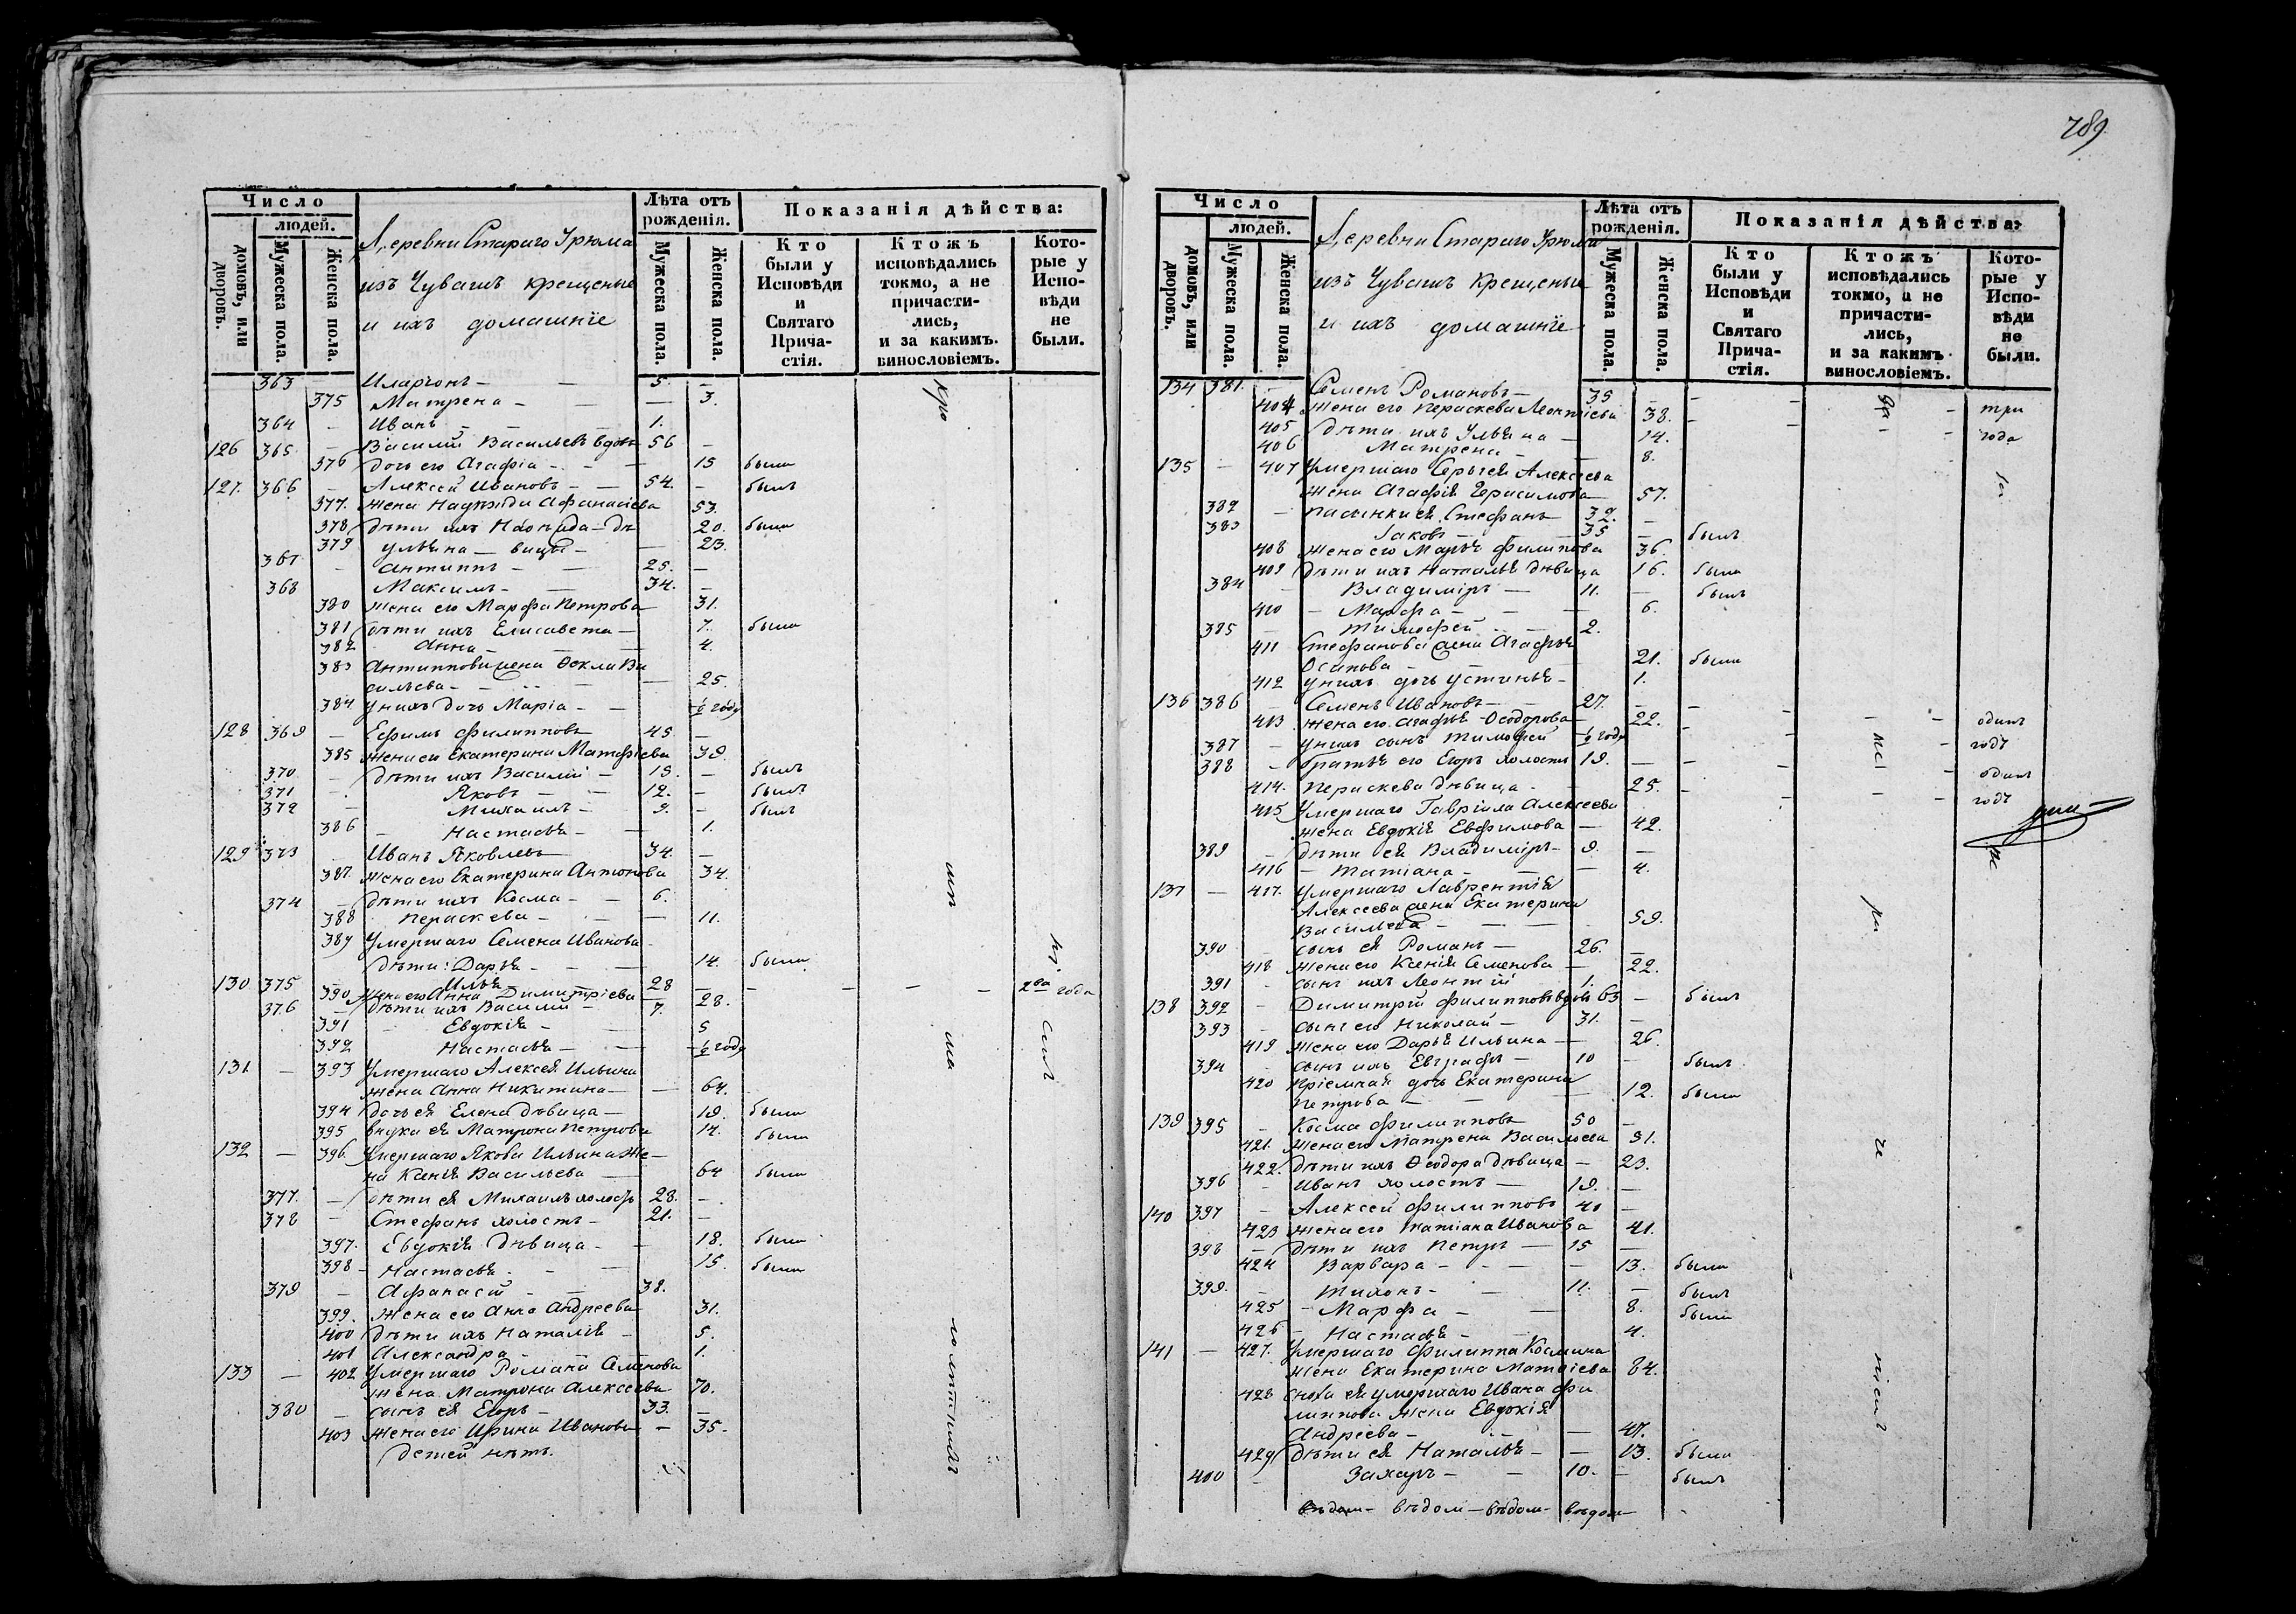 789
Число
людей.
домовъ, или дворовъ.
Мужеска пола.
Женска пола.
Деревни Стараго Урюма
изъ Чувашъ крещеные
и ихъ домашніе
Лѣта отъ рожденія.
Мужеска пола.
Женска пола.
Показанія дѣйства:
Кто были у Исповѣди и Святаго Прича- стія.
Ктожъ исповѣдались токмо, а не причасти- лись, и за какимъ. винословіемъ.
Кото- рые у Испо- вѣди не были.
363 Иларіонъ — 5.
375 Матрена — 3.
364 Иванъ — 1.
126 365 Василій Васильевъ вдовъ 56
376 дочь его Агафіа — 15 была
127. 366 Алексей Ивановъ — 54. былъ
377. жена Надежда Афанасіева 53.
378 дѣти ихъ — дѣ 20. была
379 Ульяна — вицы — 23.
367 Антиппъ — 25.
368 Максимъ — 34.
380 жена его Марфа Петрова 31.
381 дѣти ихъ Елисавета — 7. была
382 Анна — 4.
383 Антиппова жена Ѳекла Ва
сильева — 25.
384 у нихъ дочь Маріа — ½ года
128 369 Ефимъ Филипповъ 45
385 жена его Екатерина Матфіева 39.
370 дѣти ихъ Василій — 15. былъ
371 Яковъ — 12. былъ
372 Михаилъ — 9. былъ
386 Настасья — 1.
129 373 Иванъ Яковлевъ 34.
387. жена его Екатерина Антонова 34.
374 дѣти ихъ Косма — 6.
388 Пераскева — 11.
389 Умершаго Семена Иванова
дѣти: Дарья — 14. была
130 375 Илья 28 2 года
390 жена его Анна Димитріева 28.
376 дѣти ихъ Василій — 7.
391 Евдокія — 5
392 Настасья — ½ года
131 — 393 Умершаго Алексея Ильина
жена Анна Никитина — 64.
394 дочь ея Елена дѣвица — 19. была
395 внука ея Матрона Петрова 14. была
132 — 396 Умершаго Якова Ильина же-
на Ксенія Васильева 64 была
377. дѣти ея Михаилъ холостъ 28.
378 Стефанъ холостъ — 21.
397. Евдокія дѣвица — 18. была
398 Настасья — 15. была
379 Афанасій 38.
399. жена его Анна Андреева 31.
400 дѣти ихъ Наталія — 5.
401 Александра — 1.
133 — 402 Умершаго Романа Семенова
жена Матрона Алексеева 70.
380 сынъ ея Егоръ — 33.
403 жена его Ирина Иванова — 35.
детей нѣтъ.
Число
людей.
домовъ, или дворовъ.
Мужеска пола.
Женска пола.
Деревни Стараго Урюма
изъ Чувашъ крещеные
и ихъ домашніе
Лѣта отъ рожденія.
Мужеска пола.
Женска пола.
Показанія дѣйства:
Кто были у Исповѣди и Святаго Прича- стія.
Ктожъ исповѣдались токмо, а не причасти- лись, и за какимъ винословіемъ.
Кото- рые у Испо- вѣди не были.
134 381. Семенъ Романовъ — 35 три
404 жена его Пераскева Леонтіева 38. года
405 дѣти ихъ Ульяна — 14.
406 Матрена — 8.
135 — 407 Умершаго Сергѣя Алексеева
жена Агафія Герасимова 57.
382 пасынки ея Стефанъ 32.
383 Іаковъ — 35 былъ
408 жена его Марья Филипова 36.
409 дѣти ихъ Наталья дѣвица 16. была
384 Владиміръ — 11. былъ
410 Марфа — 6.
385 Тимофей — 2.
411 Стефанова жена Агафья
Осипова — 21. была
412 у нихъ дочь Устинья — 1.
136 386 Семенъ Ивановъ — 27.
413 жена его Агафья Ѳеодорова 22. одинъ
387 у нихъ сынъ Тимофей ½ года годъ
388 братья его Егоръ холостъ 19. одинъ
414. Пераскева дѣвица — 25. годъ
415 Умершаго Гавріила Алексеева
жена Евдокія Евфимова — 42.
389 дѣти ея Владиміръ — 9.
416 Татіана — 4.
137 — 417. Умершаго Лаврентія
Алексеева жена Екатерина
Васильева — 59.
390 сынъ ея Романъ — 26.
418 жена его Ксенія Семенова 22.
391 сынъ ихъ Леонтій 1.
138 392 Димитрій Филипповъ вдовъ 63 былъ
393 сынъ его Николай — 31.
419 жена его Дарья Ильина — 26.
394 сынъ ихъ Евграфъ — 10 былъ
420 пріемная дочь Екатерина
Петрова — 12. была
139 395 Косма Филипповъ 50
421. жена его Матрена Васильева 51.
422. дѣти ихъ Ѳеодора дѣвица — 23.
396 Иванъ холостъ — 19.
140 397 Алексей Филипповъ 40
423 жена его Татіана Иванова 41.
398 дѣти ихъ Петръ — 15
424 Варвара — 13. была
399. Тихонъ — 11. былъ
425 Марфа — 8. была
426 Настасья — 4.
141 — 427. Умершаго Филиппа Космина
жена Екатерина Матвіева 84.
428 сноха ея умершаго Ивана Фи
липпова жена Евдокія
Андреева — 47.
429 дѣти ея Наталья — 13. была
400 Захаръ — 10. былъ